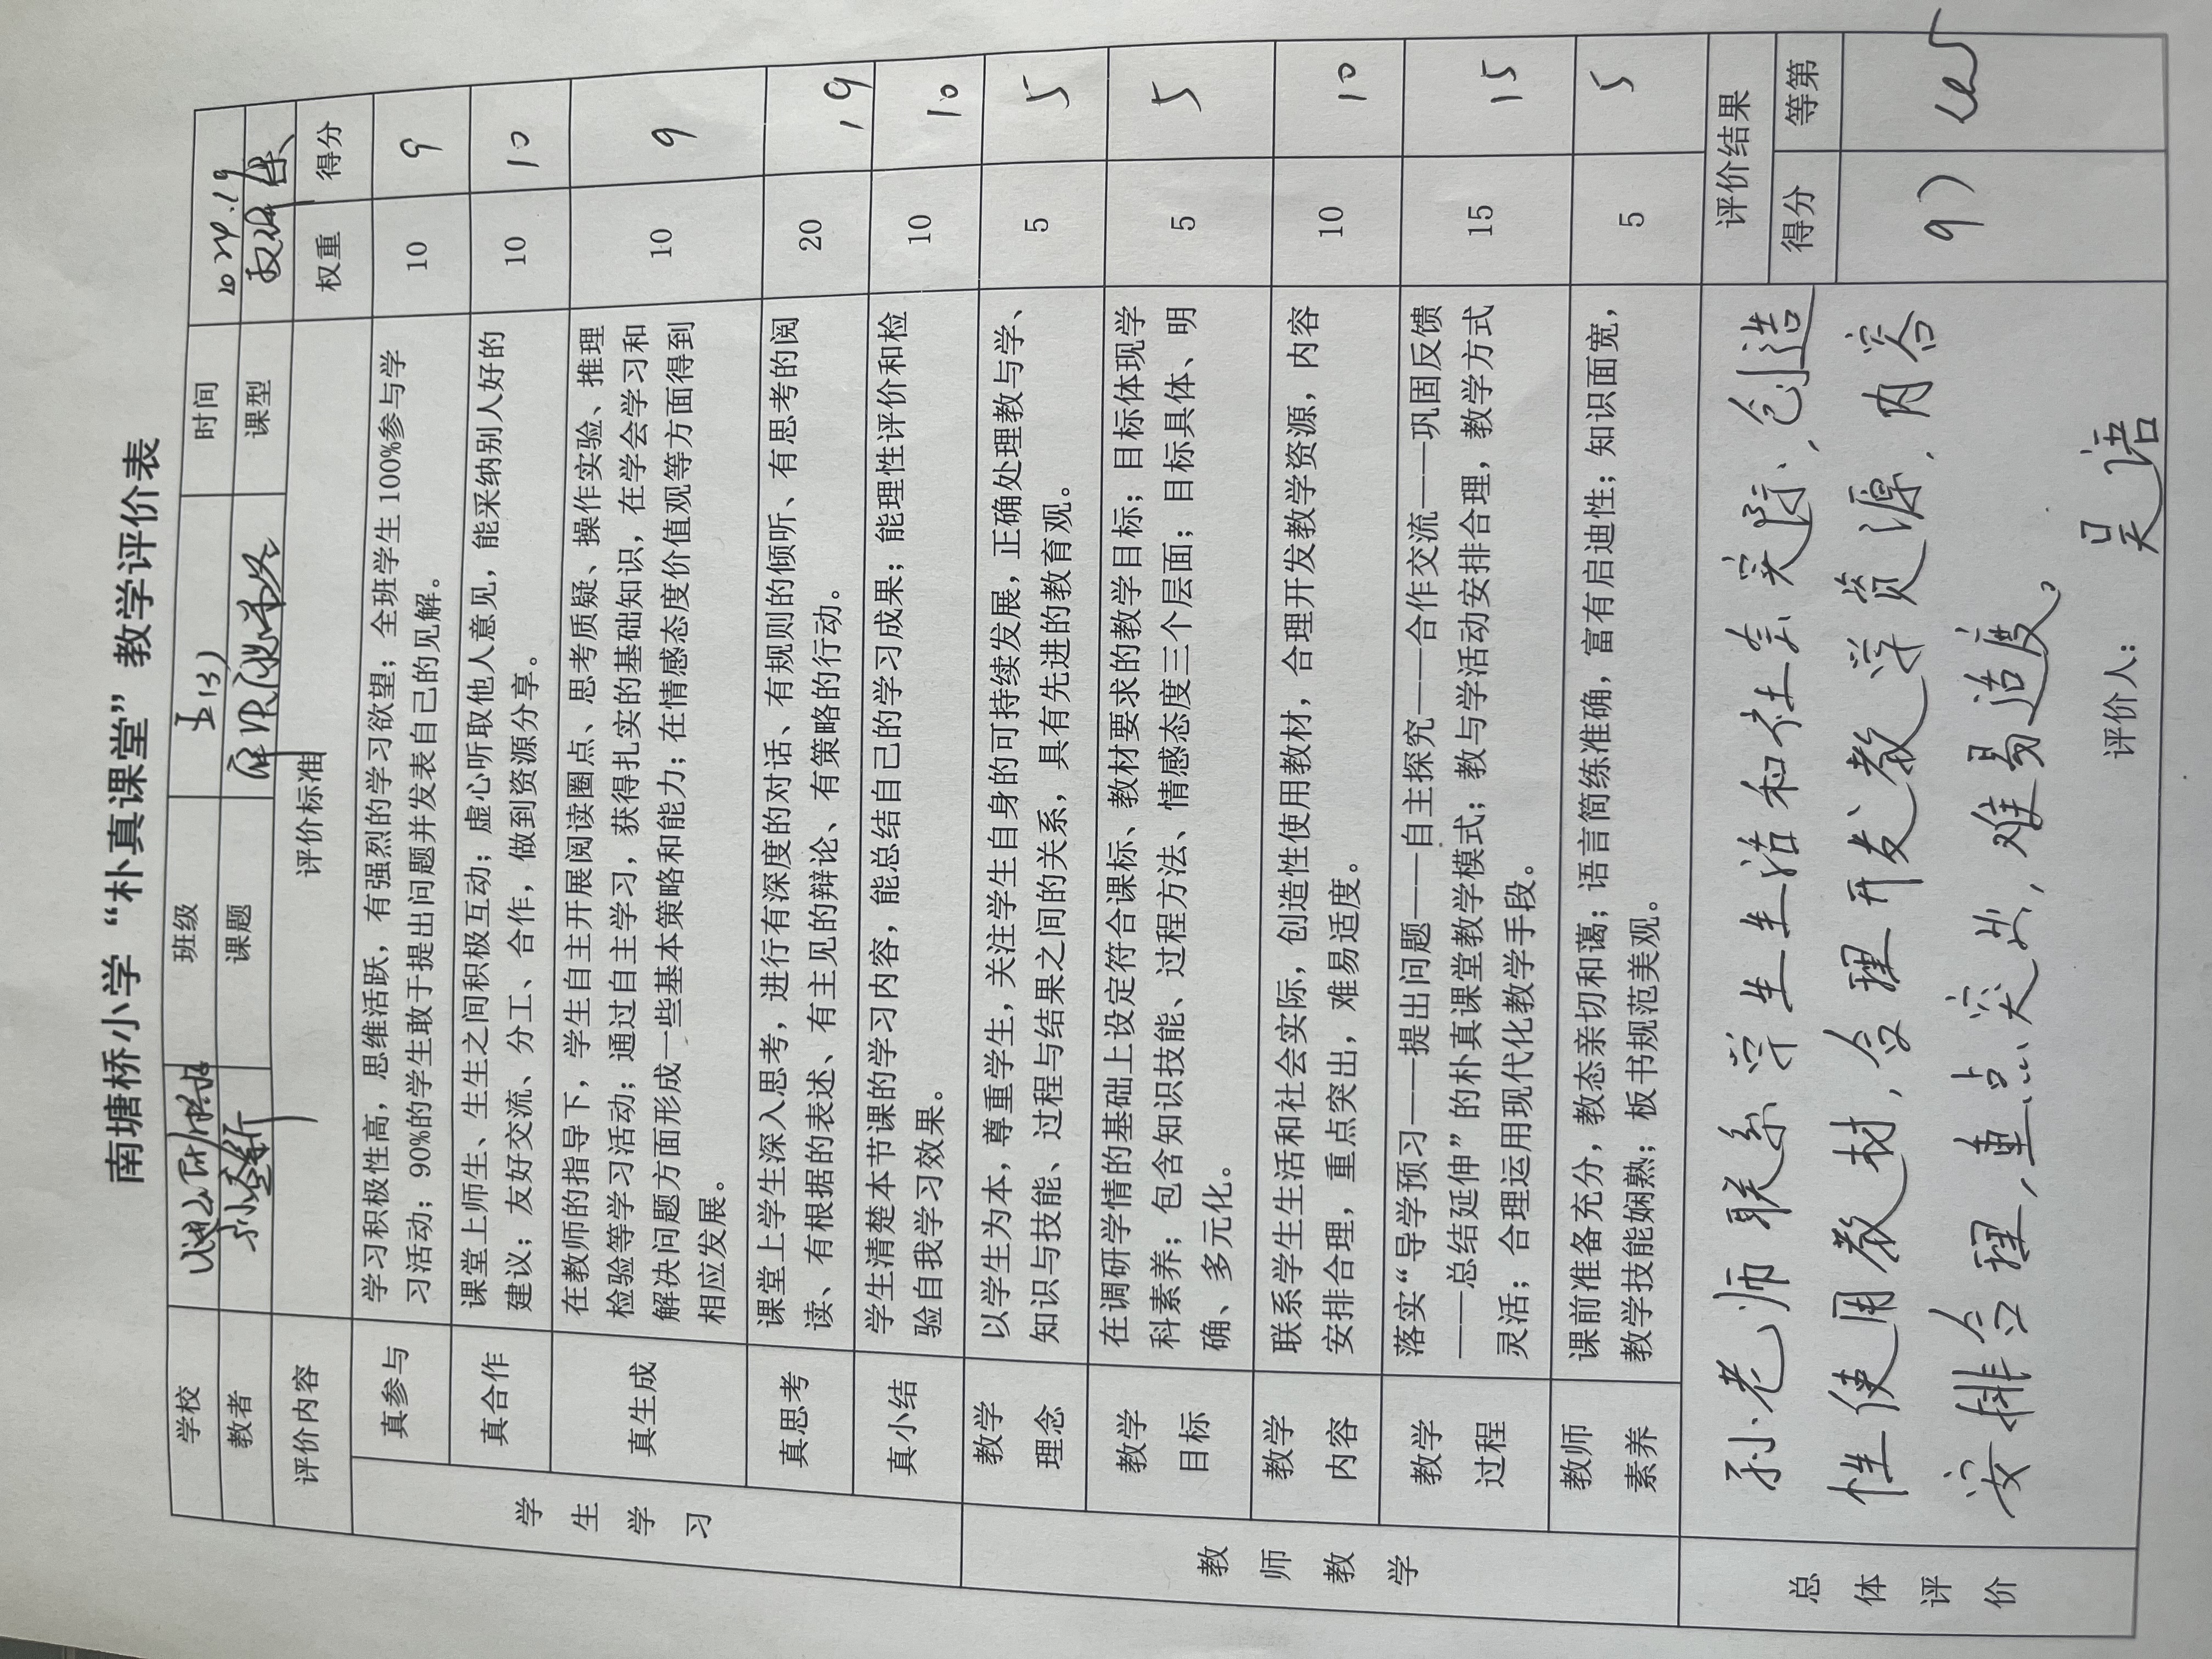 南塘桥小学“朴真课堂”教学评价表
学校 班级 五(3) 时间 2024.19
教者 孙圣新 课题 课型
评价内容 评价标准 权重 得分
学生学习
真参与 学习积极性高，思维活跃，有强烈的学习欲望；全班学生100%参与学 10 9
习活动；90%的学生敢于提出问题并发表自己的见解。
真合作 课堂上师生、生生之间积极互动；虚心听取他人意见，能采纳别人好的 10 10
建议；友好交流、分工、合作，做到资源分享。
真生成 在教师的指导下，学生自主开展阅读圈点、思考质疑、操作实验、推理 10 9
检验等学习活动；通过自主学习，获得扎实的基础知识，在学会学习和
解决问题方面形成一些基本策略和能力；在情感态度价值观等方面得到
相应发展。
真思考 课堂上学生深入思考，进行有深度的对话、有规则的倾听、有思考的阅 20 19
读、有根据的表述、有主见的辩论、有策略的行动。
真小结 学生清楚本节课的学习内容，能总结自己的学习成果；能理性评价和检 10 10
验自我学习效果。
教师教学
教学理念 以学生为本，尊重学生，关注学生自身的可持续发展，正确处理教与学、 5 5
知识与技能、过程与结果之间的关系，具有先进的教育观。
教学目标 在调研学情的基础上设定符合课标、教材要求的教学目标；目标体现学 5 5
科素养；包含知识技能、过程方法、情感态度三个层面；目标具体、明
确、多元化。
教学内容 联系学生生活和社会实际，创造性使用教材，合理开发教学资源，内容 10 10
安排合理，重点突出，难易适度。
教学过程 落实“导学预习——提出问题——自主探究——合作交流——巩固反馈 15 15
——总结延伸”的朴真课堂教学模式；教与学活动安排合理，教学方式
灵活；合理运用现代化教学手段。
教师素养 课前准备充分，教态亲切和蔼；语言简练准确，富有启迪性；知识面宽， 5 5
教学技能娴熟；板书规范美观。
总体评价
孙老师联系学生生活和社会实际，创造
性使用教材，合理开发教学资源，内容
安排合理，重点突出，难易适度。
评价人：吴语
评价结果
得分 等第
97